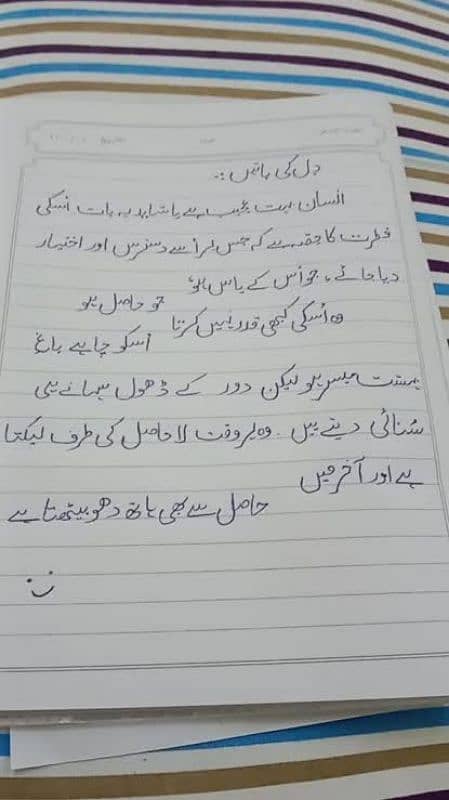 دل کی باتیں :۔
انسان بہت عجیب ہے یا شاید یہ بات اسکی
فطرت کا حصہ ہے کہ جس پر اُسے دسترس اور اختیار
دیا جائے، جو اُس کے پاس ہو،
جو حاصل ہو
وہ اُسکی کبھی قدر نہیں کرتا
اُسکو چاہیے باغ
بہشت میسر ہو لیکن دور کے ڈھول سہانے ہی
سُنائی دیتے ہیں۔ وہ ہر وقت لا حاصل کی طرف لپکتا
ہے اور آخر میں
حاصل سے بھی ہاتھ دھو بیٹھتا ہے